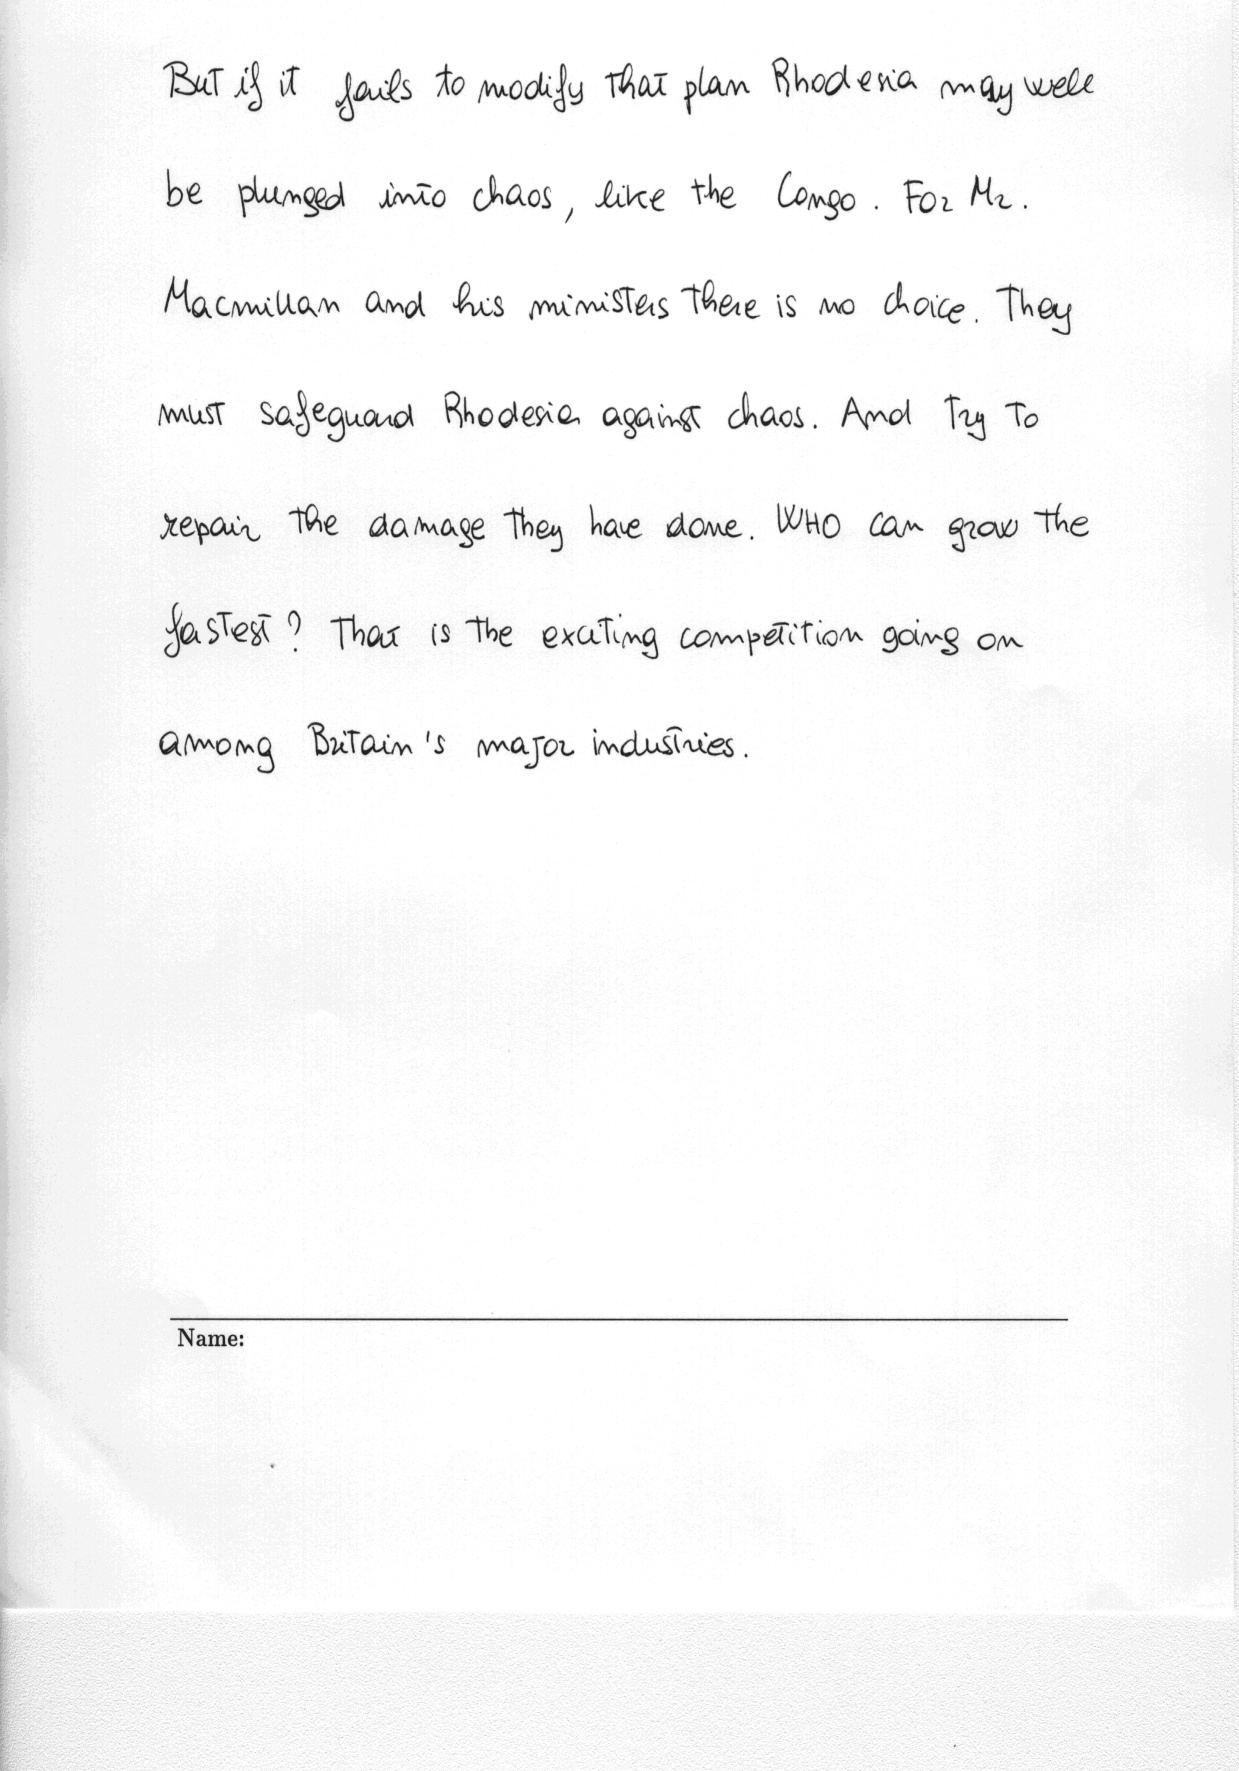 But if it fails to modify that plan Rhodesia may well
be plunged into chaos, like the Congo. For Mr.
Macmillan and his ministers there is no choice. They
must safeguard Rhodesia against chaos. And try to
repair the damage they have done. WHO can grow the
fastest? That is the exciting competition going on
among Britain's major industries.
Name: